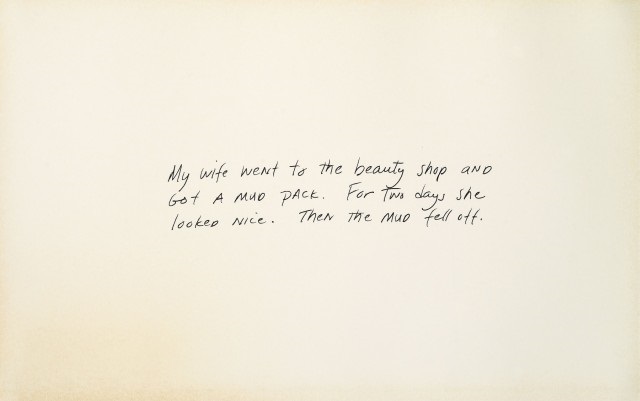 My wife went to the beauty shop AND
Got A MUD PACK. For two days she
looked Nice. Then the MUD fell off.